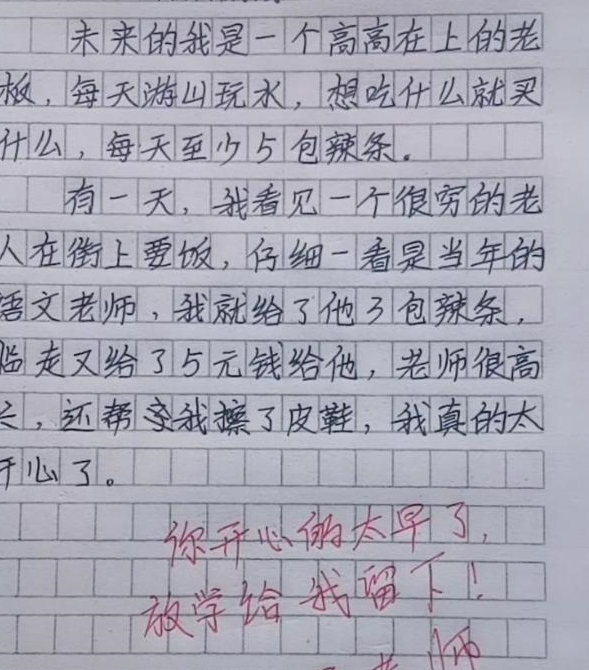 未来的我是一个高高在上的老
板，每天游山玩水，想吃什么就买
什么，每天至少5包辣条。
有一天，我看见一个很穷的老
人在街上要饭，仔细一看是当年的
语文老师，我就给了他3包辣条，
临走又给了5元钱给他，老师很高
兴，还帮我擦了皮鞋，我真的太
开心了。
你开心的太早了，
放学给我留下！
老师